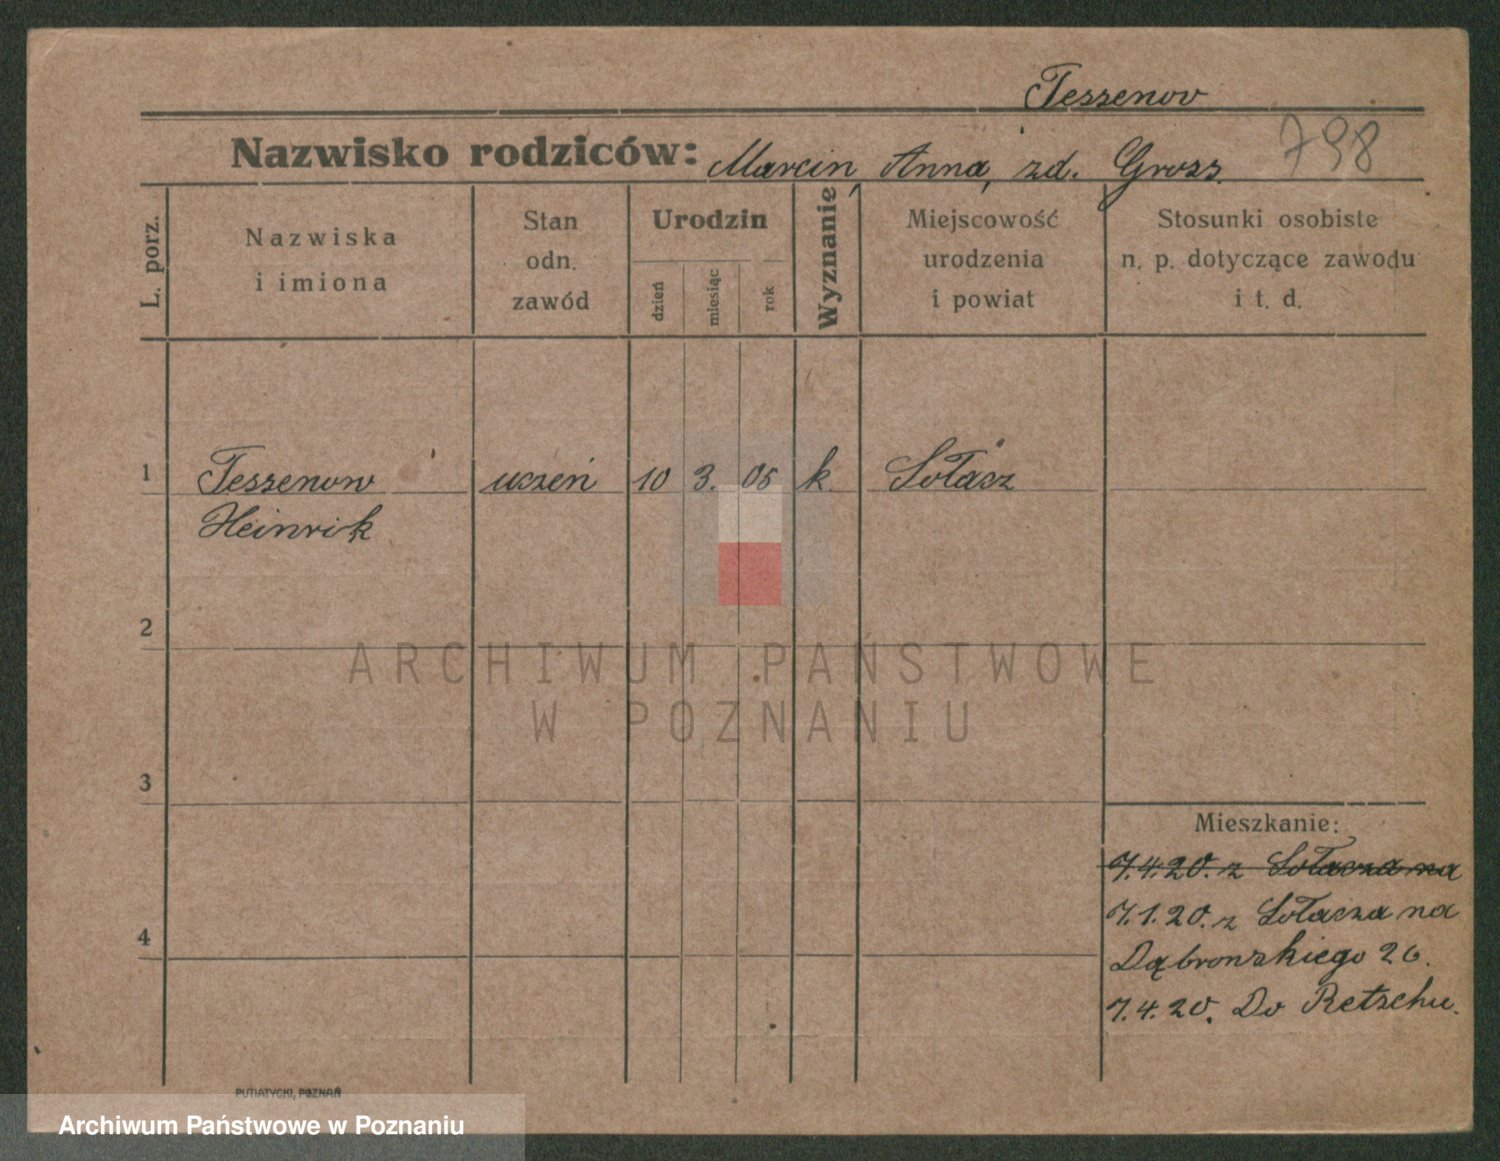 Teszenow
798
Nazwisko rodziców: Marcin, Anna, zd. Gross
L. porz.
Nazwiska
i imiona
Stan
odn.
zawód
Urodzin
dzień
miesiąc
rok
Wyznanie
Miejscowość
urodzenia
i powiat
Stosunki osobiste
n. p. dotyczące zawodu
i t. d.
1 Teszenow uczeń 10 3. 05 k. Sołacz
Heinrik
2
ARCHIWUM PAŃSTWOWE
W POZNANIU
3
Mieszkanie:
7.4.20. z Sołacza na
7.1.20. z Sołacza na
4
Dąbrowskiego 26.
7.4.20. Do Retschu.
PUTIATYCKI, POZNAŃ
Archiwum Państwowe w Poznaniu